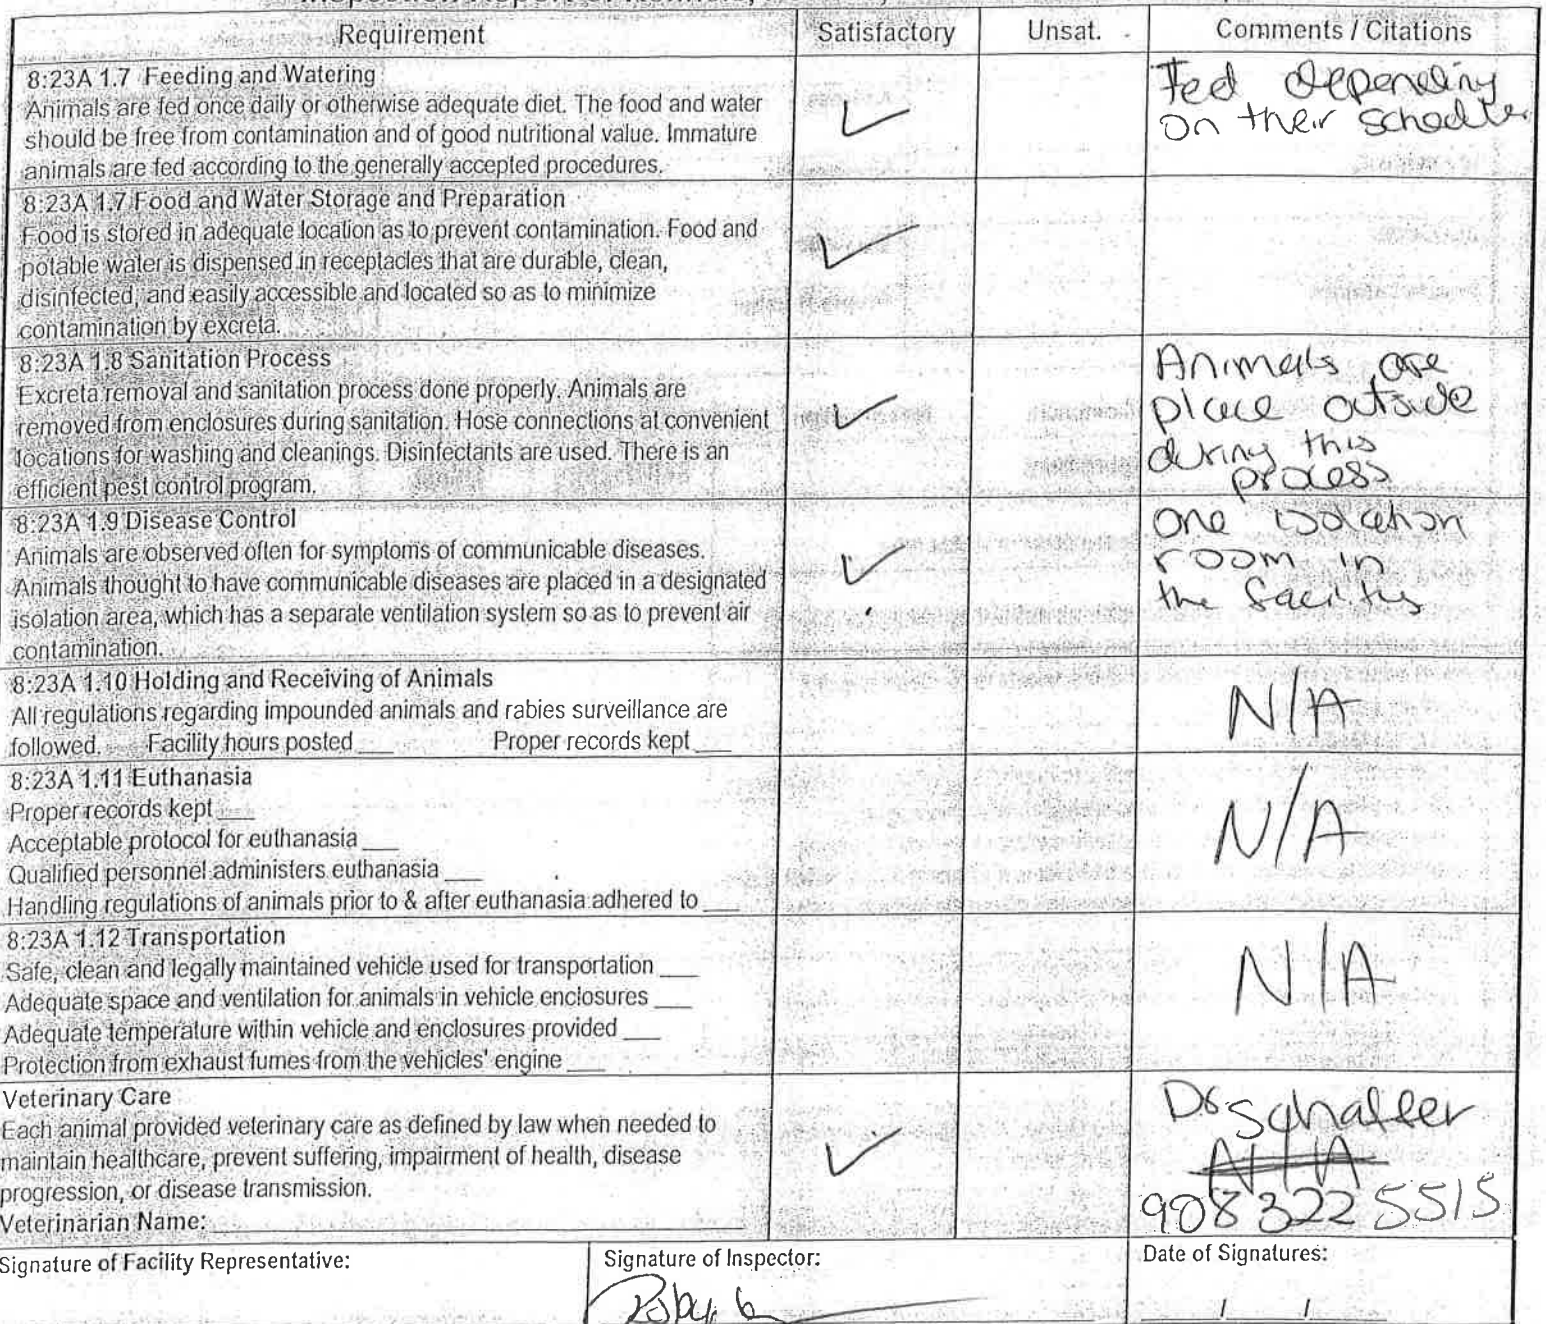 Requirement Satisfactory Unsat. Comments / Citations
8:23A 1.7 Feeding and Watering
Animals are fed once daily or otherwise adequate diet. The food and water
should be free from contamination and of good nutritional value. Immature
animals are fed according to the generally accepted procedures.
✓
Fed depending
on their
8:23A 1.7 Food and Water Storage and Preparation
Food is stored in adequate location as to prevent contamination. Food and
potable water is dispensed in receptacles that are durable, clean,
disinfected, and easily accessible and located so as to minimize
contamination by excreta.
✓
8:23A 1.8 Sanitation Process
Excreta removal and sanitation process done properly. Animals are
removed from enclosures during sanitation. Hose connections at convenient
locations for washing and cleanings. Disinfectants are used. There is an
efficient pest control program.
✓
Animals are
place outside
during this
process
8:23A 1.9 Disease Control
Animals are observed often for symptoms of communicable diseases.
Animals thought to have communicable diseases are placed in a designated
isolation area, which has a separate ventilation system so as to prevent air
contamination.
✓
One isolation
room in
the facility
8:23A 1.10 Holding and Receiving of Animals
All regulations regarding impounded animals and rabies surveillance are
followed. Facility hours posted ___ Proper records kept ___
N/A
8:23A 1.11 Euthanasia
Proper records kept ___
Acceptable protocol for euthanasia ___
Qualified personnel administers euthanasia ___
Handling regulations of animals prior to & after euthanasia adhered to ___
N/A
8:23A 1.12 Transportation
Safe, clean and legally maintained vehicle used for transportation ___
Adequate space and ventilation for animals in vehicle enclosures ___
Adequate temperature within vehicle and enclosures provided ___
Protection from exhaust fumes from the vehicles' engine ___
N/A
Veterinary Care
Each animal provided veterinary care as defined by law when needed to
maintain healthcare, prevent suffering, impairment of health, disease
progression, or disease transmission.
Veterinarian Name: ___
✓
Dr
N/A
908 322 5515
Signature of Facility Representative: Signature of Inspector: Date of Signatures:
/ /